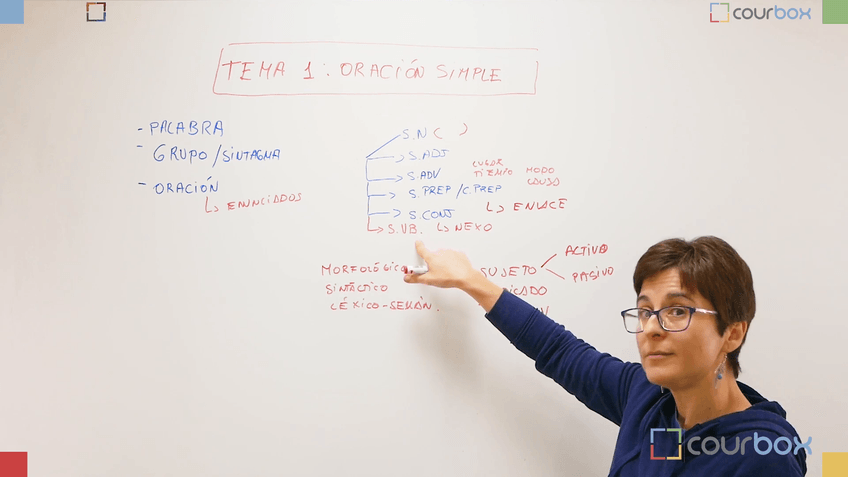 courbox
TEMA 1: ORACIÓN SIMPLE
- PALABRA
- GRUPO/SINTAGMA
- ORACIÓN
↳ ENUNCIADOS
S.N ( )
S.ADJ
S.ADV
LUGAR
TIEMPO MODO
CAUSA
S.PREP/C.PREP
S.CONJ
↳ ENLACE
S.VB. ↳ NEXO
MORFOLÓGICO
SINTÁCTICO
LÉXICO-SEMÁN.
SUJETO
ACTIVO
PASIVO
courbox